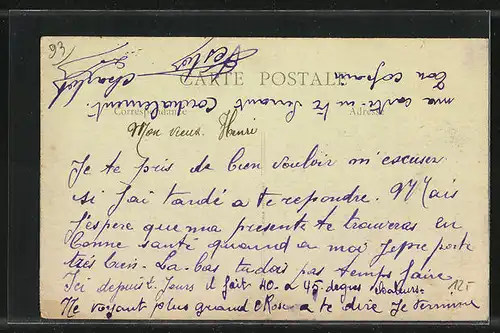 93
CARTE POSTALE
Correspondance
Adresse
Mon vieux Henri
Je te pris de bien vouloir m'escuser
si j'ai tardé a te repondre. Mais
J'espere que ma presente te trouveras en
bonne santé quand a moi je me porte
très bien. La-bas tu dois pas temps faire
Ici depuis jours il fait 40 a 45 degres chaleurs
Ne voyant plus grand chose a te dire Je termine
ma carte en te serrant cordialement
Ton copain
Charlot
125